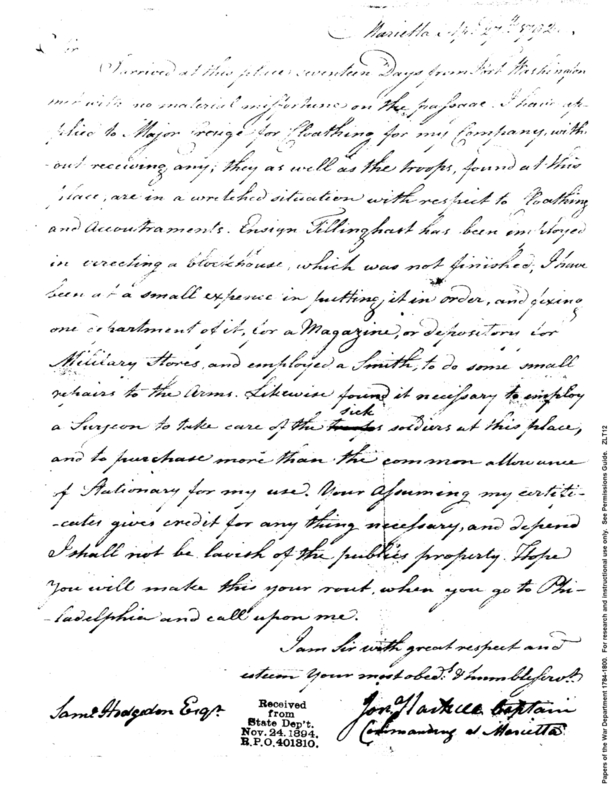 Marietta Apl. 27th 1792.
Sir
I arrived at this place seventeen Days from Fort Washington
met with no material misfortune on the passage. I have ap-
plied to Major for Cloathing for my Company, with-
out receiving any; they as well as the troops, found at this
place, are in a wretched situation with respect to Cloathing
and Accoutraments. Ensign Tillinghast has been employed
in errecting a blockhouse, which was not finished, I have
been at a small expence in putting it in order, and fixing
one department of it, for a Magazine, or depository for
Military Stores, and employed a Smith, to do some small
repairs to the Arms. Likewise found it necessary to employ
a Surgeon to take care of the sick soldiers at this place,
and to purchase more than the common allowance
of Stationary for my use. Your assuming my certifi-
-cates gives credit for any thing necessary, and depend
I shall not be lavish of the publics property. Hope
You will make this your rout, when you go to Phi-
-ladelphia and call upon me.
I am Sir with great respect and
esteem Your most obedt. & humble Servt.
Jon. Haskell Captain
Commanding at Marietta
Saml. Hodgdon Esqr.
Received
from
State Dep't.
Nov. 24. 1894.
R.P.O. 401310.
Papers of the War Department 1784-1800. For research and instructional use only. See Permissions Guide. ZLT12